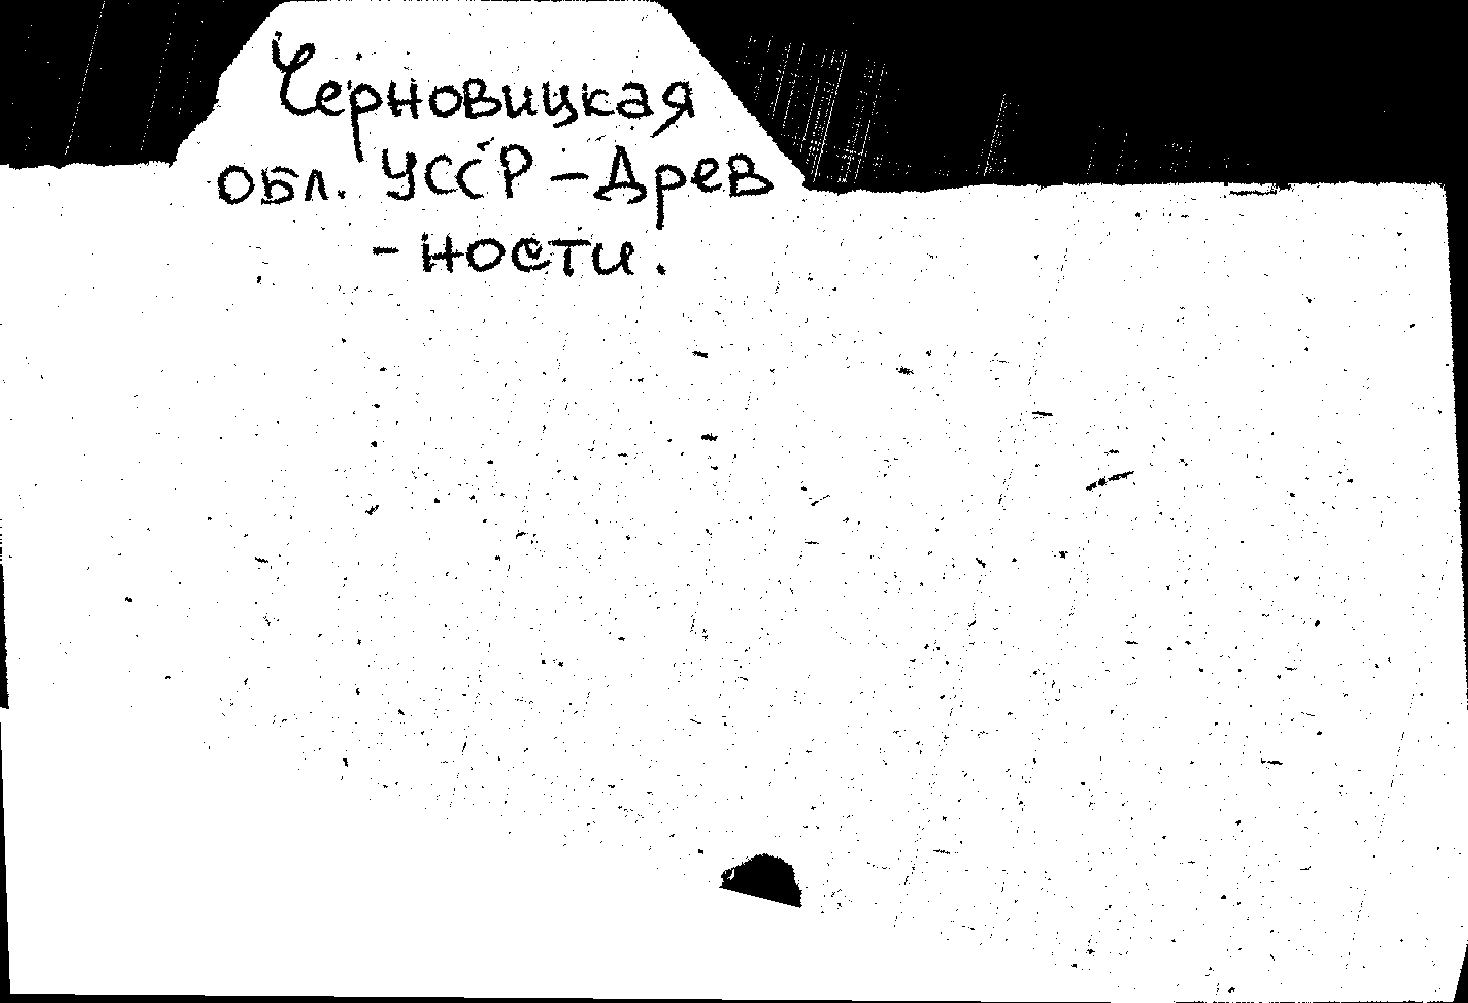 Черновицкая
обл. УССР – Древ
- ности.